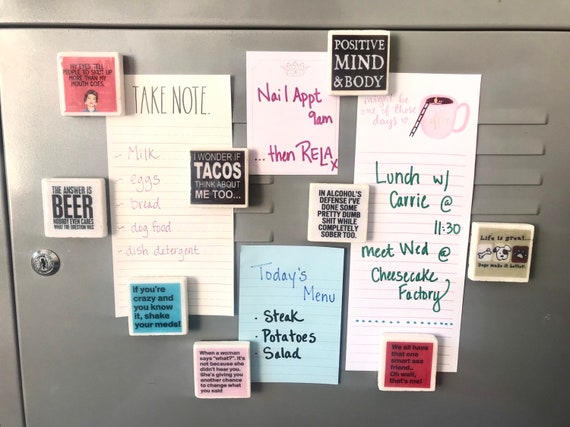 MY EYES TELL
PEOPLE TO SHUT UP
MORE THAN MY
MOUTH DOES.
TAKE NOTE.
- Milk
- eggs
- bread
- dog food
- dish detergent
Nail Appt
9am
... then RELAX
POSITIVE
MIND
& BODY
might be
one of those
days
Lunch w/
Carrie @
11:30
meet Wed @
Cheesecake
Factory
I WONDER IF
TACOS
THINK ABOUT
ME TOO...
THE ANSWER IS
BEER
NOBODY EVEN CARES
WHAT THE QUESTION WAS
IN ALCOHOL'S
DEFENSE I'VE
DONE SOME
PRETTY DUMB
SHIT WHILE
COMPLETELY
SOBER TOO.
Life is great...
Dogs make it better!
Today's
Menu
· Steak
· Potatoes
· Salad
If you're
crazy and you
know it, shake
your meds!
When a woman
says "what?". It's
not because she
didn't hear you.
She's giving you
another chance
to change what
you said
We all have
that one
smart ass
friend...
Oh wait,
that's me!